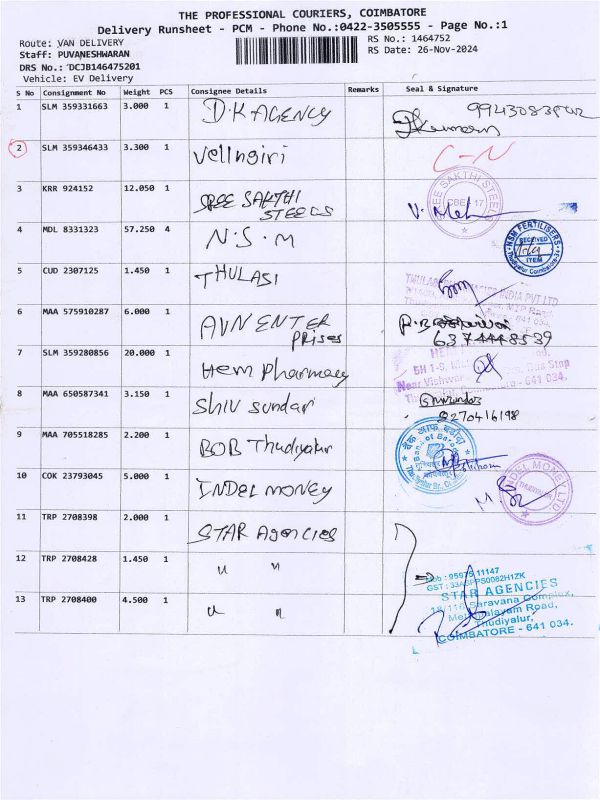 THE PROFESSIONAL COURIERS, COIMBATORE
Delivery Runsheet - PCM - Phone No.:0422-3505555 - Page No.:1
Route: VAN DELIVERY
RS No.: 1464752
Staff: PUVANESHWARAN
RS Date: 26-Nov-2024
DRS No.: DCJB146475201
Vehicle: EV Delivery
S No Consignment No Weight PCS Consignee Details Remarks Seal & Signature
1 SLM 359331663 3.000 1 D.K AGENCY
2 SLM 359346433 3.300 1 Vellngiri C-N
3 KRR 924152 12.050 1 SREE SAKTHI
STEELS
EE SAKTHI STEE
CBE 17
4 MDL 8331323 57.250 4 N.S.M
NSM FERTILISERS
RECEIVED
ITEM
Thudiyalur Coimbatore-34
5 CUD 2307125 1.450 1 THULASI
INDIA PVT LTD
6 MAA 575910287 6.000 1 AVN ENTER
PRISES
6374448539
7 SLM 359280856 20.000 1 Hem Pharmacy
Bus Stop
Near
641 034.
8 MAA 650587341 3.150 1 Shiv Sundar
8270416198
9 MAA 705518285 2.200 1 BOB Thudiyalur
बैंक आफ बड़ौदा
Bank of Baroda
10 COK 23793045 5.000 1 INDEL MONEY
INDEL MONEY LTD
11 TRP 2708398 2.000 1 STAR Agencies
12 TRP 2708428 1.450 1 " "
13 TRP 2708400 4.500 1 " "
Mob : 95975 11147
STAR AGENCIES
Saravana Complex,
Mettupalayam Road,
Thudiyalur,
COIMBATORE - 641 034.